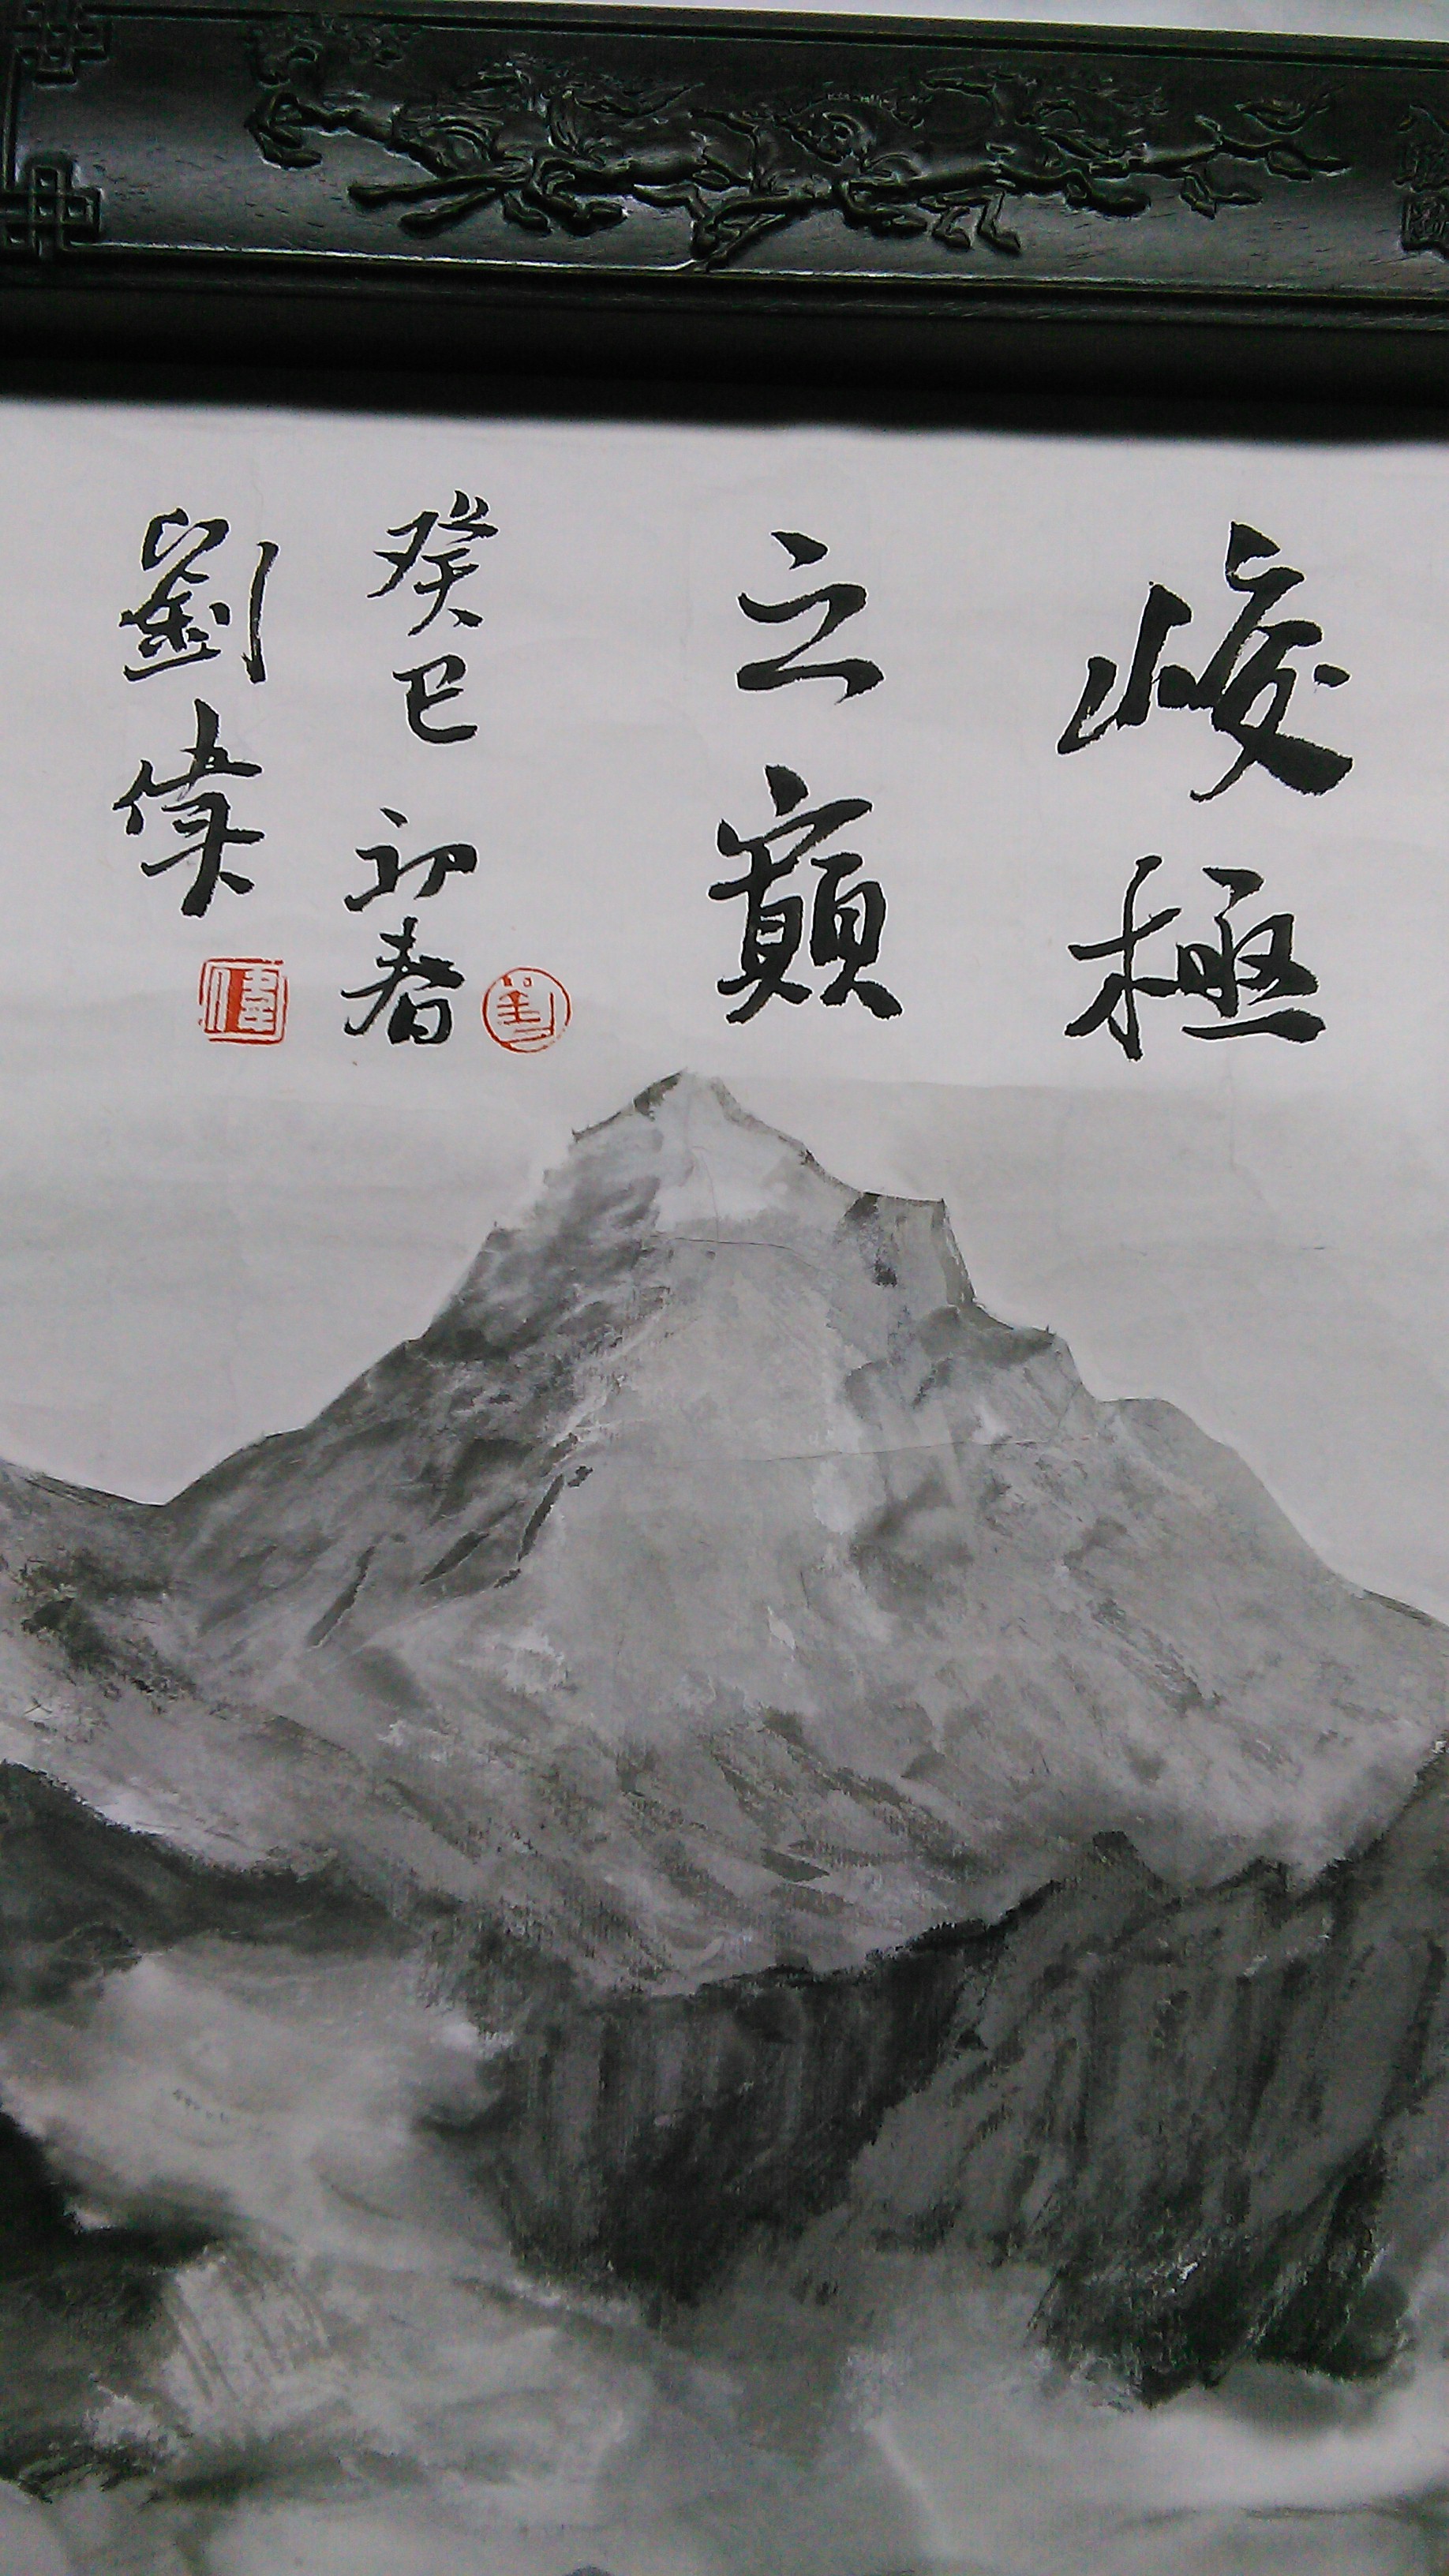 峻極
之巔
癸巳初春
劉偉
劉
偉